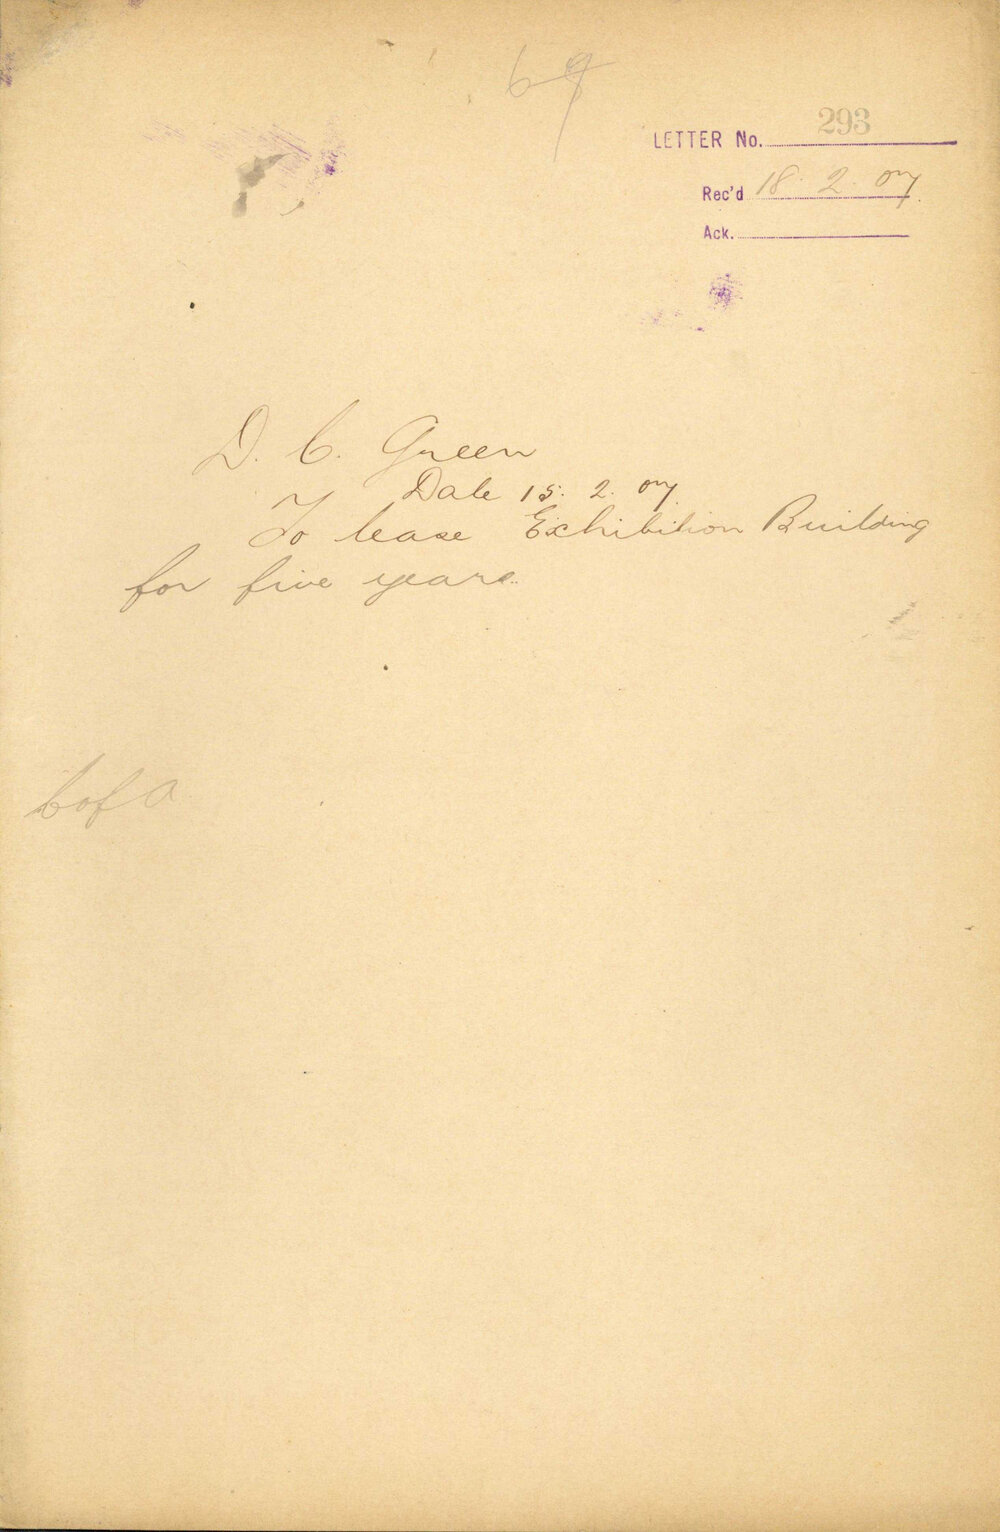 69
LETTER No. 293
Rec'd 18. 2. 07
Ack.
D. C. Green
Date 15. 2. 07
To lease Exhibition Building
for five years.
C of A